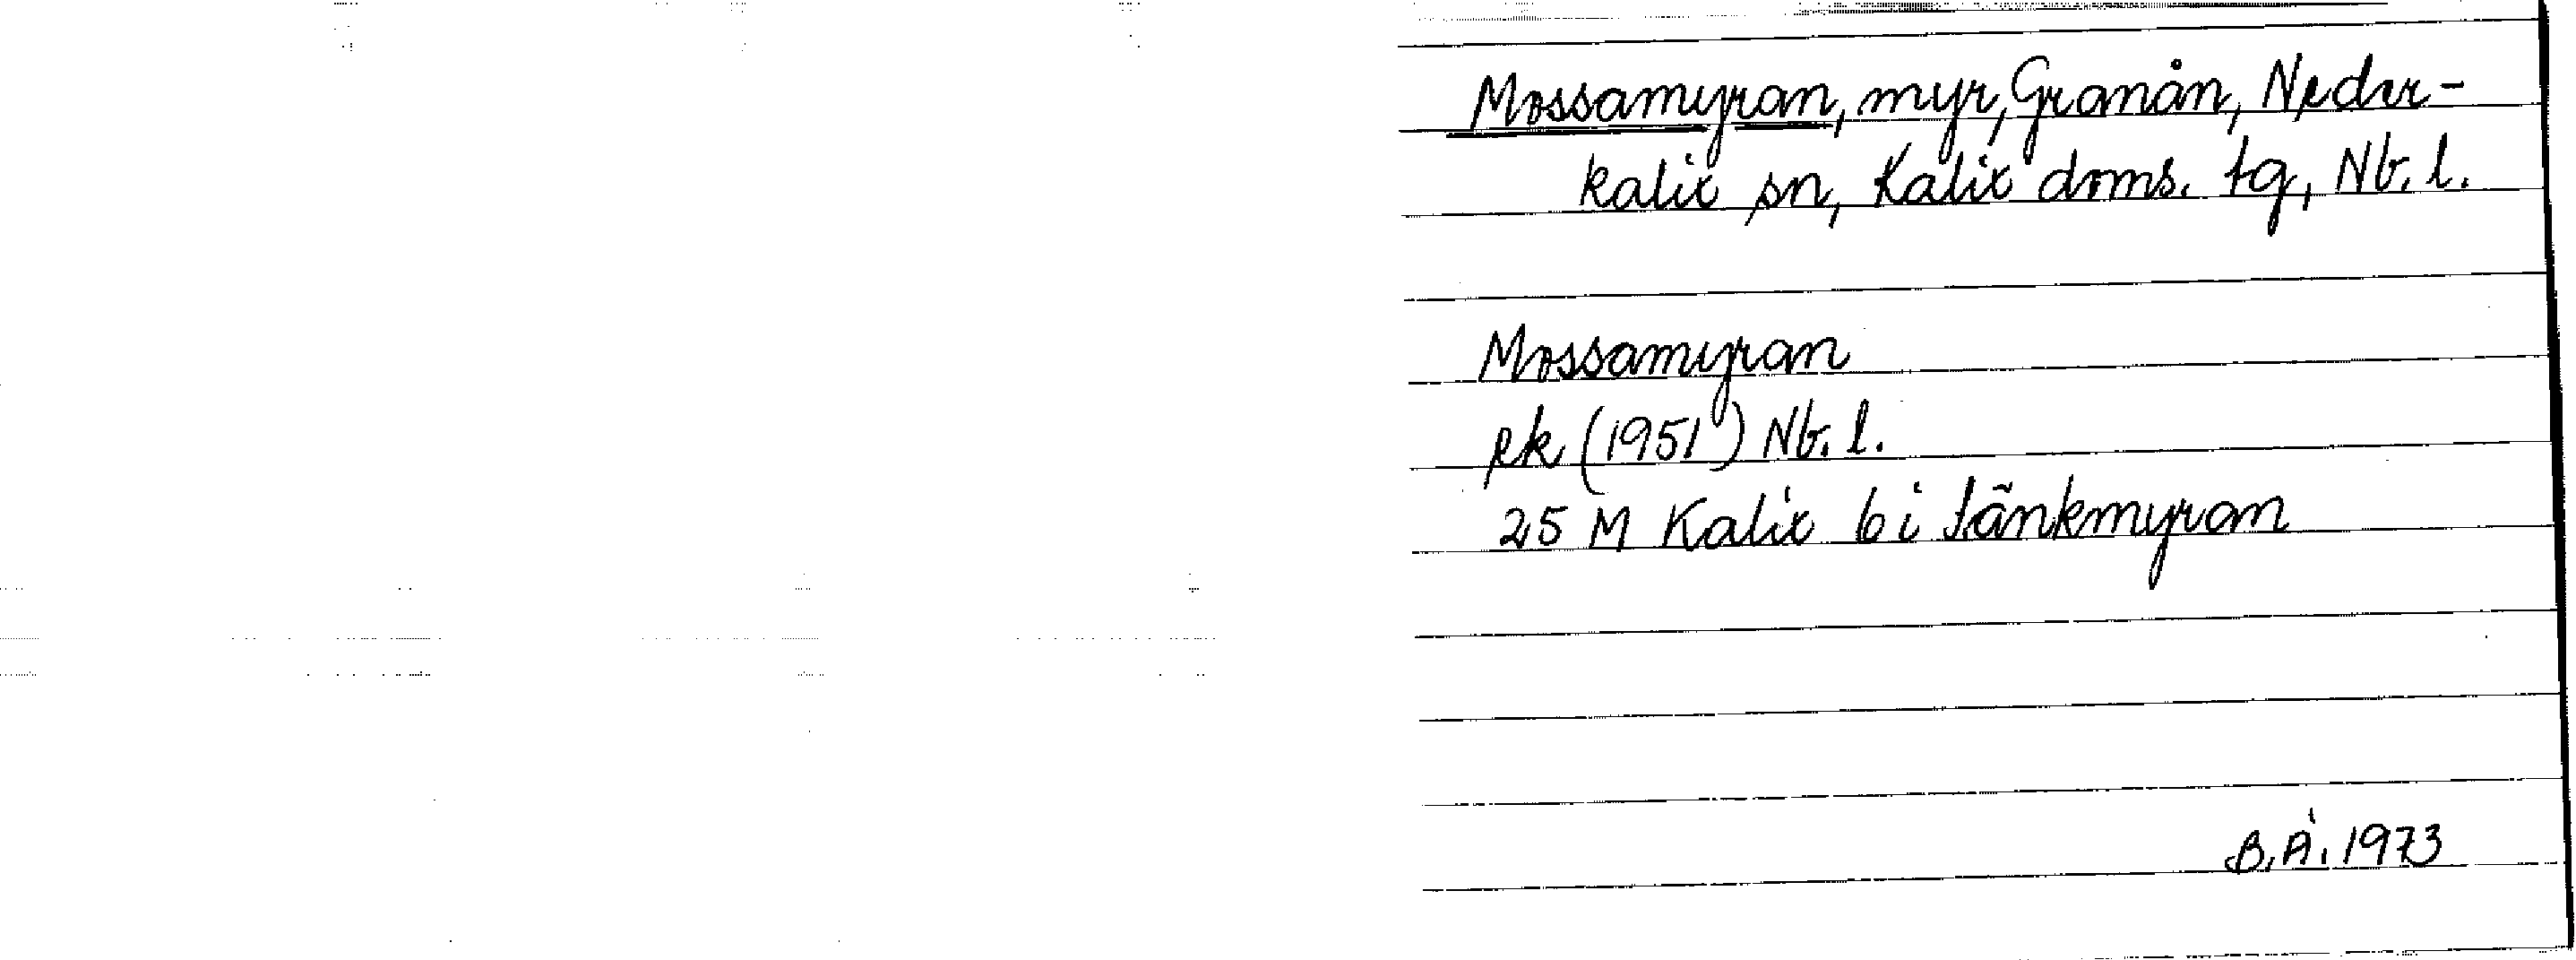 Mossamyran, myr, Granån, Neder-
kalix sn, Kalix doms. tg, Nb. l.
Mossamyran
ek (1951) Nb. l.
25 M Kalix 6 i Länkmyran
B.Å. 1973